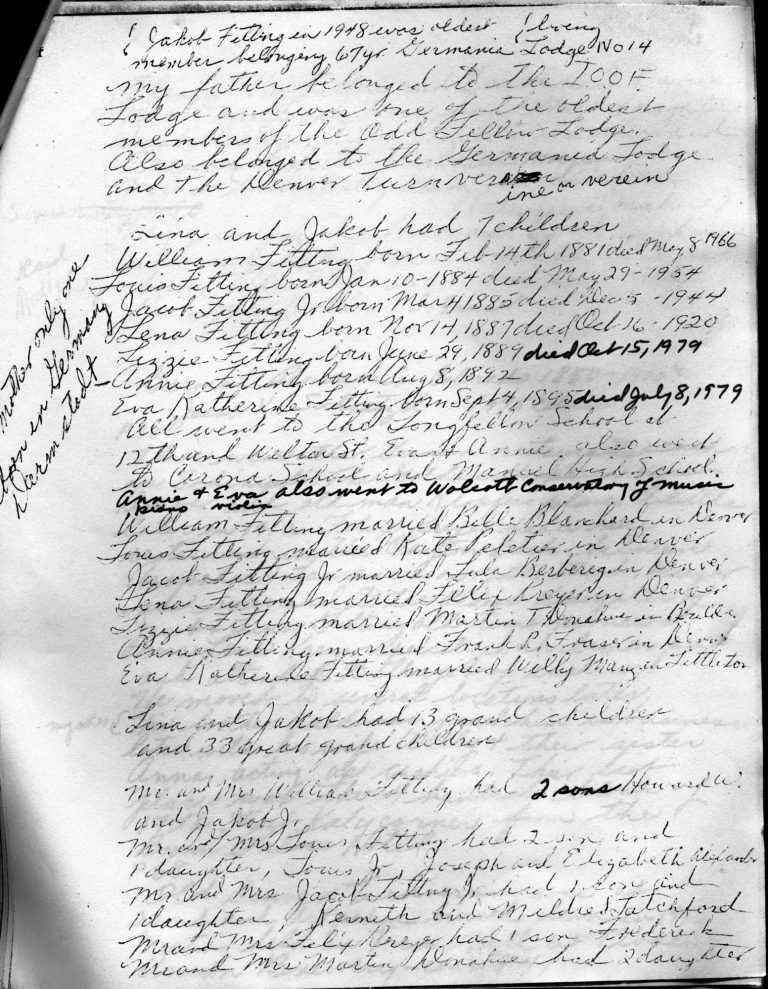 Jakob Fitting in 1948 was oldest living
member belonging 67 yr. Germania Lodge No 14
My father belonged to the I.O.O.F.
Lodge and was one of the oldest
members of the Odd Fellow Lodge.
Also belonged to the Germania Lodge
and the Denver Turnver
ine or verein
Lina and Jakob had 7 children
William Fitting born Feb 14th 1881 died May 8 1966
Louis Fitting born Jan 10-1884 died May 29-1954
Jacob Fitting Jr born Mar 4 1885 died Dec 5-1944
Lena Fitting born Nov 14, 1887 died Oct 16-1920
Lizzie Fitting born June 29, 1889 died Oct 15, 1979
Annie Fitting born Aug 8, 1892
Eva Katherine Fitting born Sept 4, 1895 died July 8, 1979
mother only one
born in Germany
Darmstadt
All went to the Longfellow School at
12th and Welton St. Eva & Annie also went
to Corona School and Manual High School.
Annie & Eva also went to Wolcott Conservatory of Music
piano violin
William Fitting married Belle Blanchard in Denver
Louis Fitting married Kate Peletier in Denver
Jacob Fitting Jr married Lula Berbereg in Denver
Lena Fitting married Felix Kreyer in Denver
Lizzie Fitting married Martin T Donahue in Boulder
Annie Fitting married Frank R. Fraser in Denver
Eva Katherine Fitting married Willy Mang in Littleton
Lina and Jakob had 13 grand children
and 33 great grand children
Mr. and Mrs William Fitting had 2 sons Howard W.
and Jakob Jr.
Mr. and Mrs Louis Fitting had 2 son and
1 daughter, Louis Jr, Joseph and Elizabeth Alexander
Mr and Mrs Jacob Fitting Jr had 1 son and
1 daughter, Kenneth and Mildred Latchford
Mr and Mrs Felix Kreyer had 1 son Frederick
Mr and Mrs Martin Donahue had 2 daughter